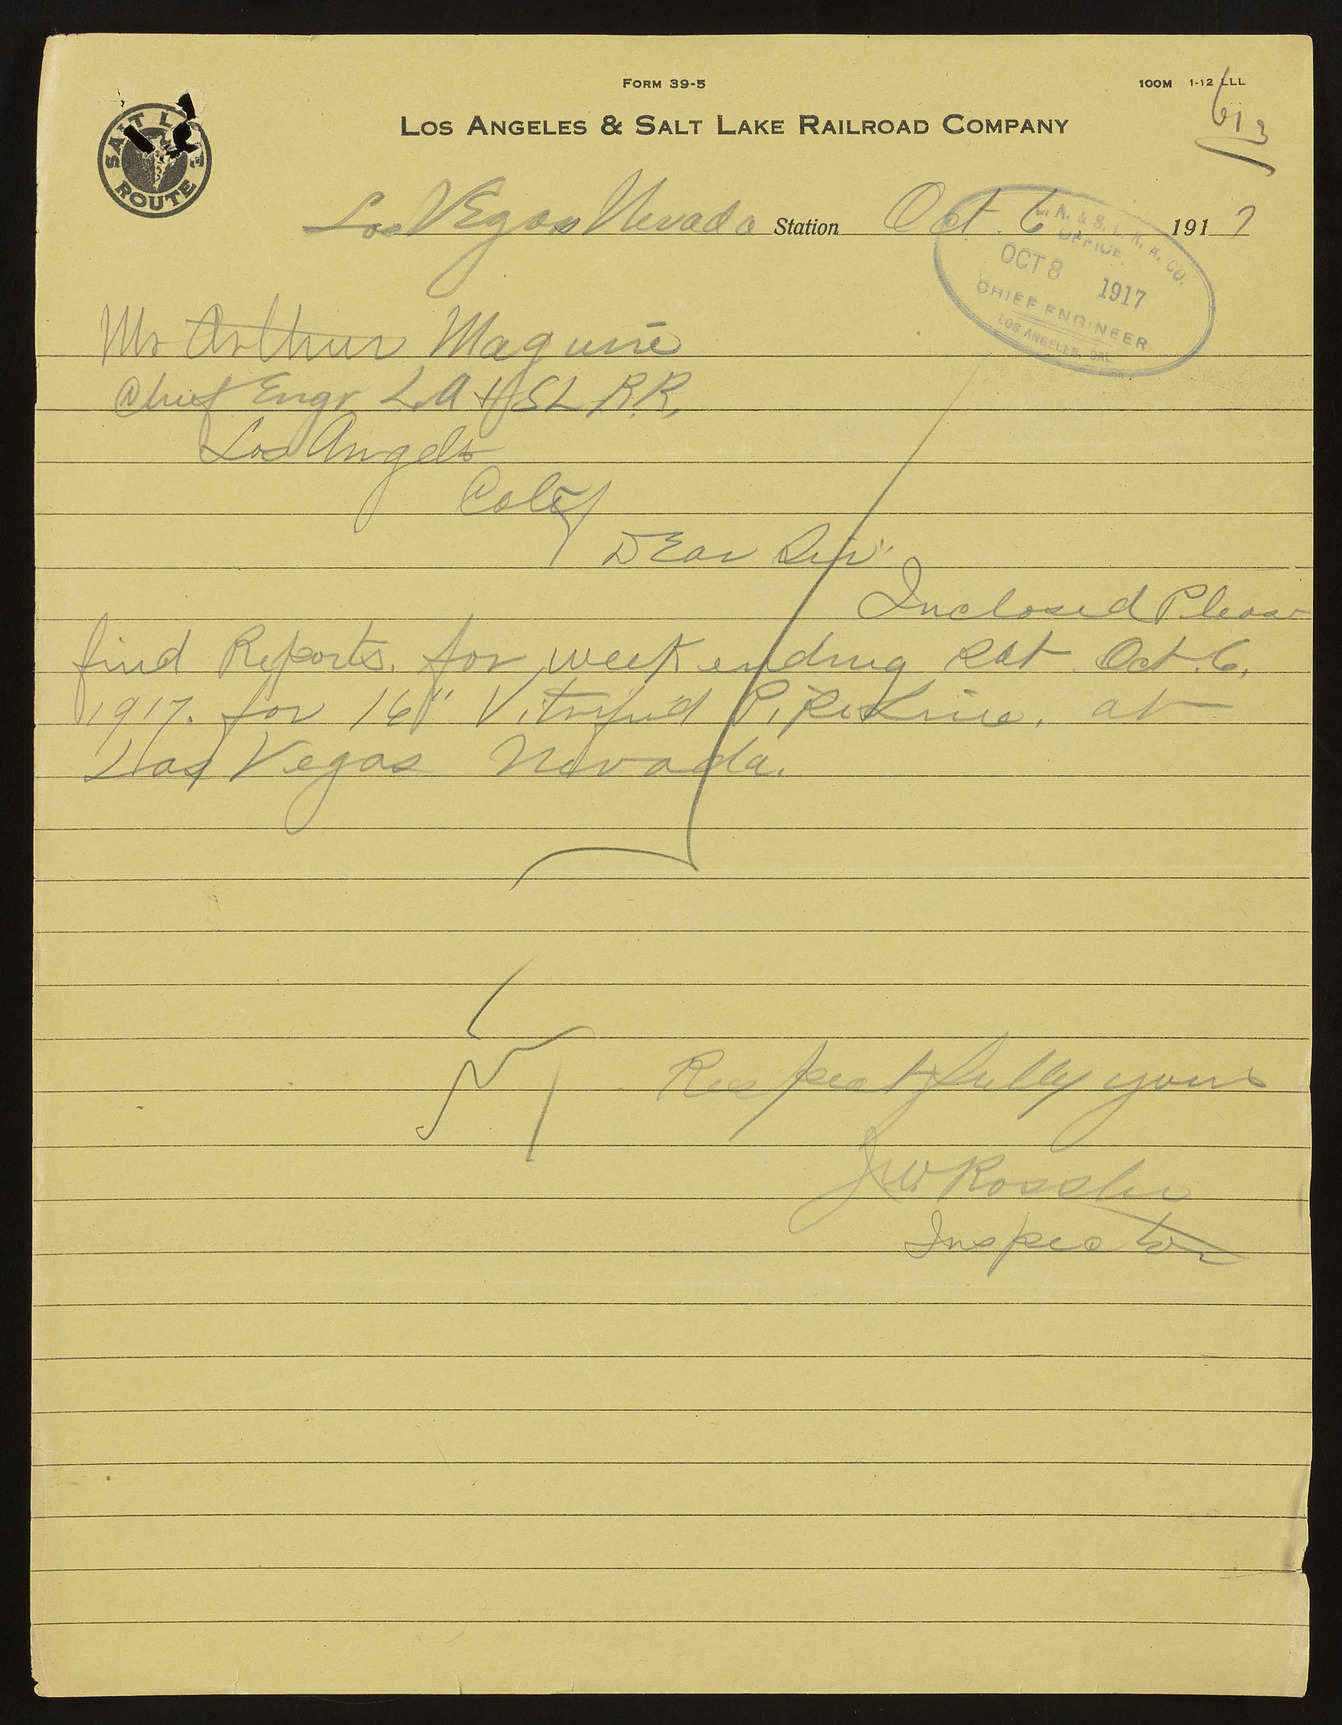 FORM 39-5
100M 1-12 LLL
613
LOS ANGELES & SALT LAKE RAILROAD COMPANY
SALT LAKE ROUTE
Las Vegas Nevada Station Oct. 6 1917
L. A. & S. L. R. R. CO.
OFFICE
OCT 8 1917
CHIEF ENGINEER
LOS ANGELES, CAL.
Mr Arthur Maguire
Chief Engr L.A & SL R.R.
Los Angels
Calif
Dear Sir"
Inclosed Please
find Reports. for week ending Sat Oct. 6,
1917. for 16" Vitrified Pipe Line. at
Las Vegas Nevada.
Respectfully yours
J.W. Rossler
Inspector